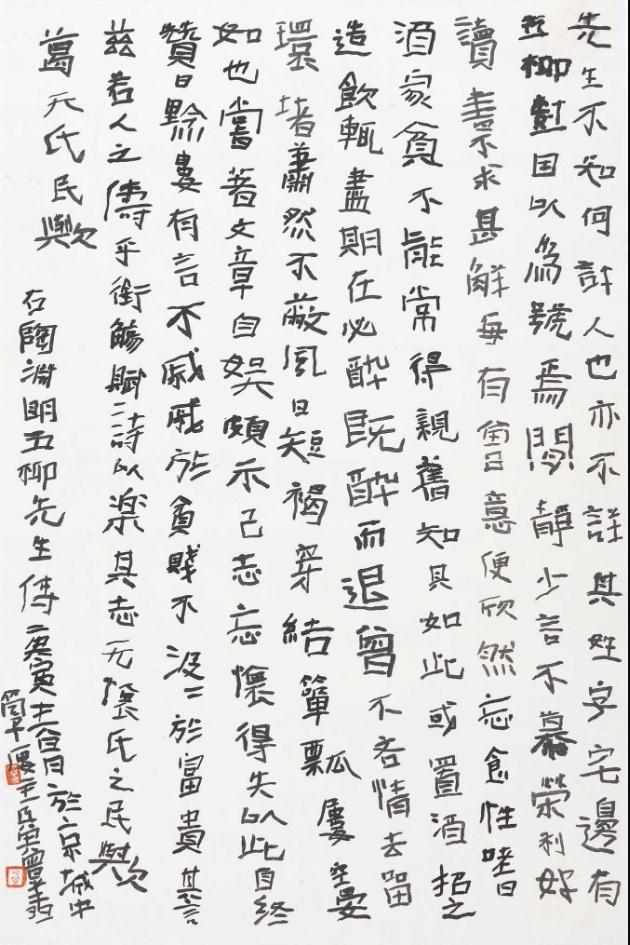 先生不知何許人也亦不詳其姓字宅邊有
五柳樹因以為號焉閒靜少言不慕榮利好
讀書不求甚解每有會意便欣然忘食性嗜
酒家貧不能常得親舊知其如此或置酒招之
造飲輒盡期在必醉既醉而退曾不吝情去留
環堵蕭然不蔽風日短褐穿結簞瓢屢空晏
如也嘗著文章自娛頗示己志忘懷得失以此自終
贊曰黔婁有言不戚戚於貧賤不汲二於富貴其言
茲若人之儔乎銜觴賦詩以樂其志无懷氏之民歟
葛天氏民歟
右陶淵明五柳先生傳庚寅於京城中
曾翔書